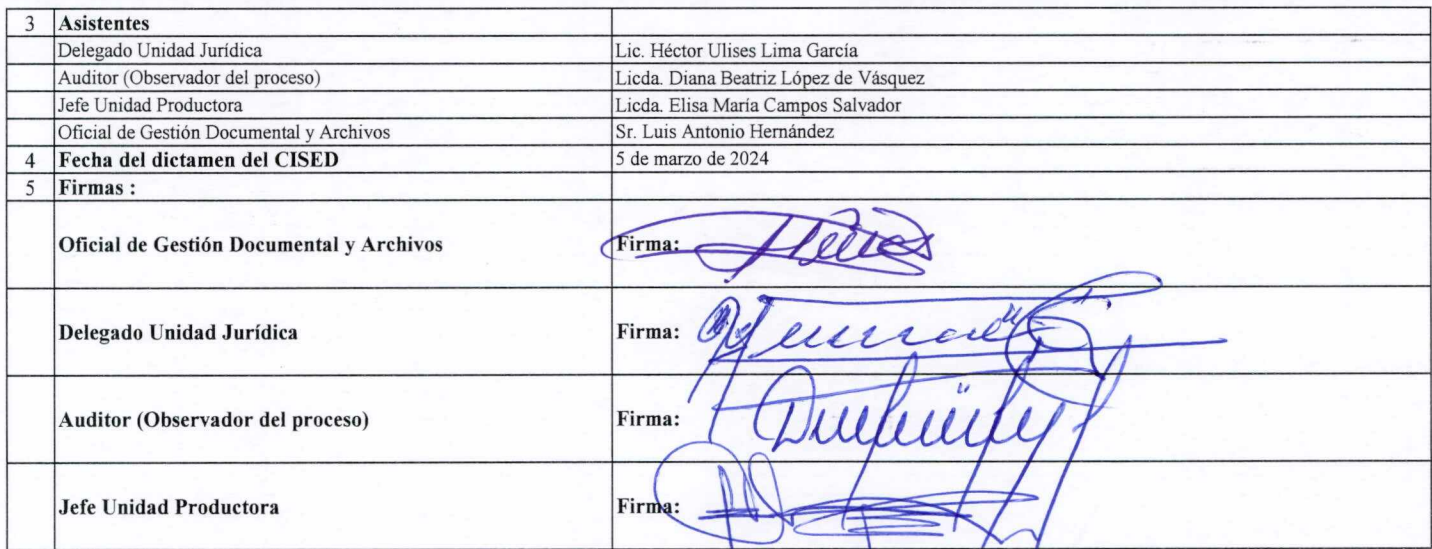 3 Asistentes
Delegado Unidad Jurídica Lic. Héctor Ulises Lima García
Auditor (Observador del proceso) Licda. Diana Beatriz López de Vásquez
Jefe Unidad Productora Licda. Elisa María Campos Salvador
Oficial de Gestión Documental y Archivos Sr. Luis Antonio Hernández
4 Fecha del dictamen del CISED 5 de marzo de 2024
5 Firmas :
Oficial de Gestión Documental y Archivos Firma:
Delegado Unidad Jurídica Firma:
Auditor (Observador del proceso) Firma:
Jefe Unidad Productora Firma: